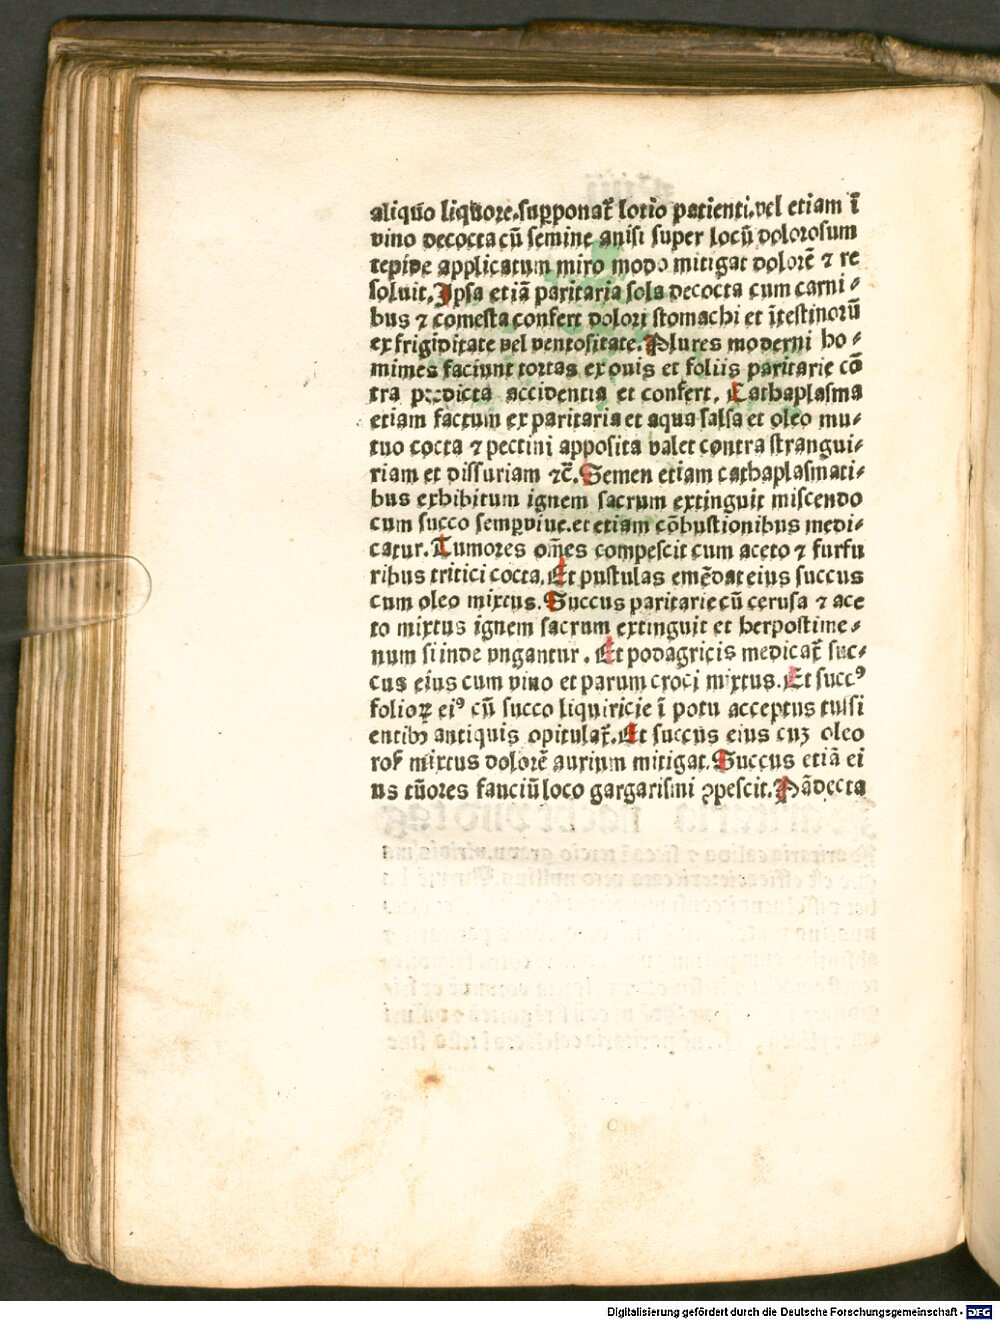 aliquo liquore.supponat᷑ lotio patienti.vel etiam ī
vino decocta cū semine anisi super locū dolorosum
tepide applicatum miro modo mitigat dolorē ⁊ re
soluit. Ipsa etiā paritaria sola decocta cum carni⸗
bus ⁊ comesta confert dolori stomachi et ītestinorū
ex frigiditate vel ventositate. Plures moderni ho⸗
mines faciunt tortas ex ouis et foliis paritarie cō
tra predicta accidentia et confert. Cathaplasma
etiam factum ex paritaria et aqua salsa et oleo mu⸗
tuo cocta ⁊ pectini apposita valet contra strangui⸗
riam et dissuriam ⁊c̄. Semen etiam cathaplasmati⸗
bus exhibitum ignem sacrum extinguit miscendo
cum succo semꝑviue.et etiam cōbustionibus medi⸗
catur. Tumores om̄es compescit cum aceto ⁊ furfu
ribus tritici cocta. Et pustulas emēdat eius succus
cum oleo mixtus. Succus paritarie cū cerusa ⁊ ace
to mixtus ignem sacrum extinguit et herpostime⸗
num si inde vngantur. Et podagricis medicat᷑ suc⸗
cus eius cum vino et parum croci mixtus. Et succꝰ
folioꝝ eiꝰ cū succo liquiricie ī potu acceptus tussi
entibꝫ antiquis opitulat᷑. Et succus eius cuꝫ oleo
ros᷑ mixtus dolorē aurium mitigat. Succus etiā ei
us tūores fauciū loco gargarismi ꝯpescit. Pādecta